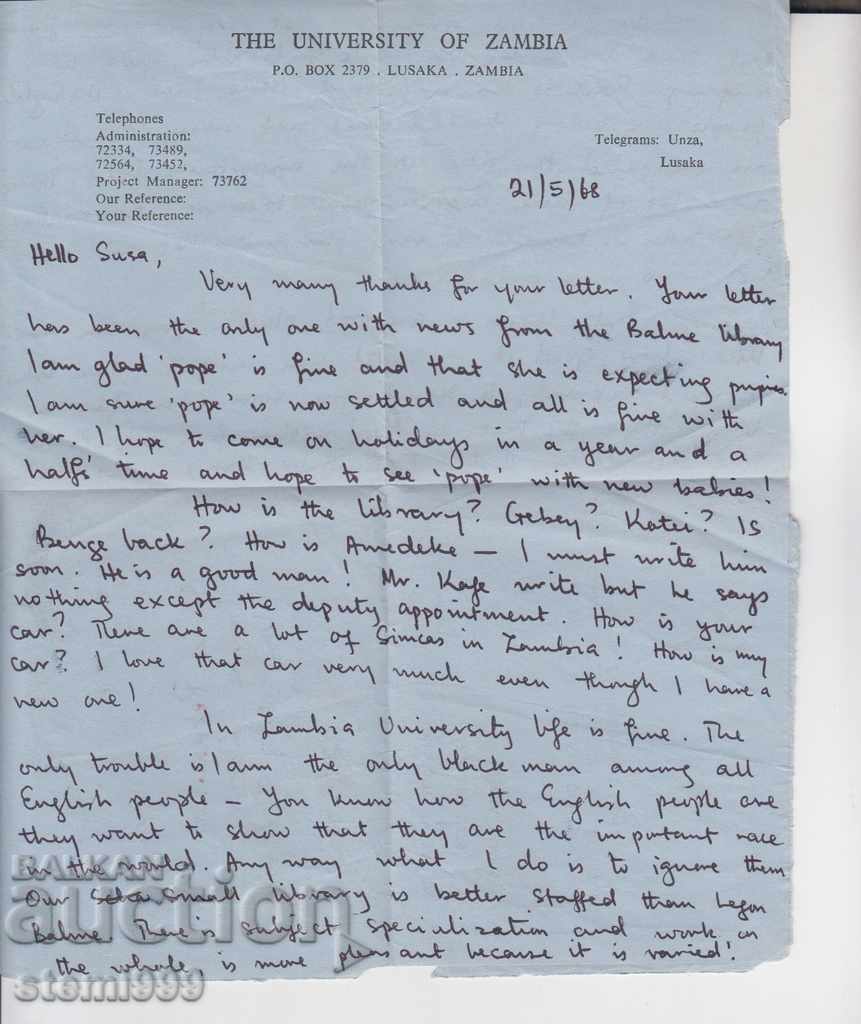 THE UNIVERSITY OF ZAMBIA
P.O. BOX 2379 . LUSAKA . ZAMBIA
Telephones
Administration:
72334, 73489,
72564, 73452,
Project Manager: 73762
Our Reference:
Your Reference:
Telegrams: Unza,
Lusaka
21/5/68
Hello Susa,
Very many thanks for your letter. Your letter
has been the only one with news from the Balme library
I am glad 'pope' is fine and that she is expecting
I am sure 'pope' is now settled and all is fine with
her. I hope to come on holidays in a year and a
halfs' time and hope to see 'pope' with new babies!
How is the library? Gebey? Katei? Is
Benge back? How is Amedeke — I must write him
soon. He is a good man! Mr. Kafe write but he says
nothing except the deputy appointment. How is your
car? There are a lot of Simcas in Zambia! How is my
car? I love that car very much even though I have a
new one!
In Zambia University life is fine. The
only trouble is I am the only black man among all
English people — You know how the English people are
they want to show that they are the important race
in the world. Any way what I do is to ignore them
Our small library is better staffed than Legon
Balme. There is subject specialization and work on
the whole, is more pleasant because it is varied!
BALKAN
auction
stemi999